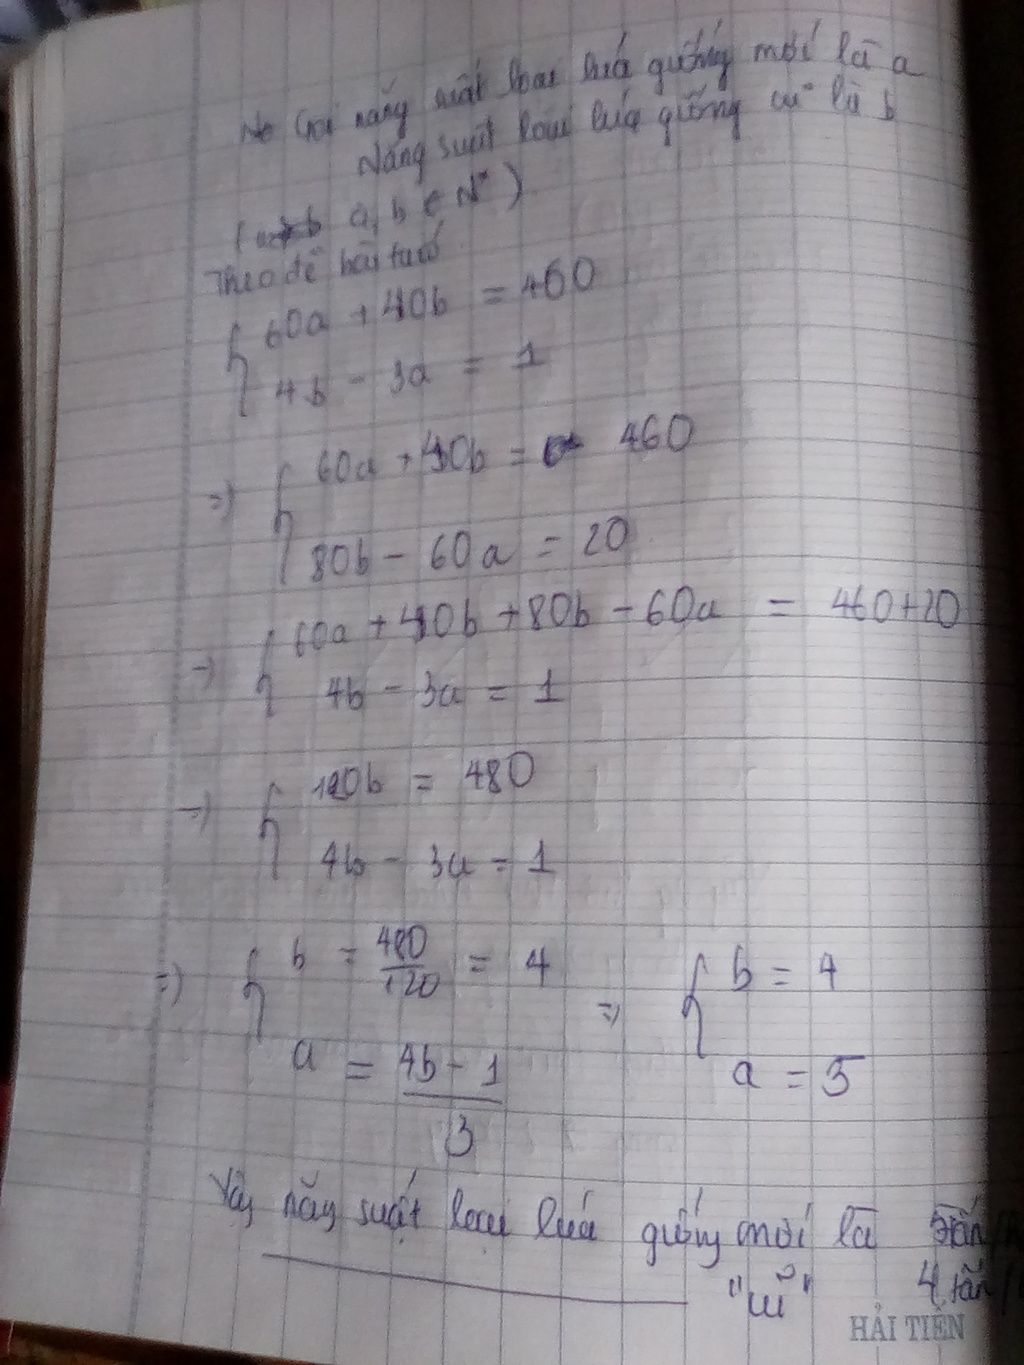 Gọi năng suất loại lúa giống mới là a
Năng suất loại lúa giống cũ là b
( a, b ∈ N* )
Theo đề bài ta có
{ 60a + 40b = 460
4b - 3a = 1
=> { 60a + 40b = 460
80b - 60a = 20
=> { 60a + 40b + 80b - 60a = 460+20
4b - 3a = 1
=> { 120b = 480
4b - 3a = 1
=> { b = 480/120 = 4 => { b = 4
a = (4b - 1)/3 a = 5
Vậy năg suất loại lúa giống mới là 5 tấn/
"cũ" 4 tấn/
HẢI TIẾN